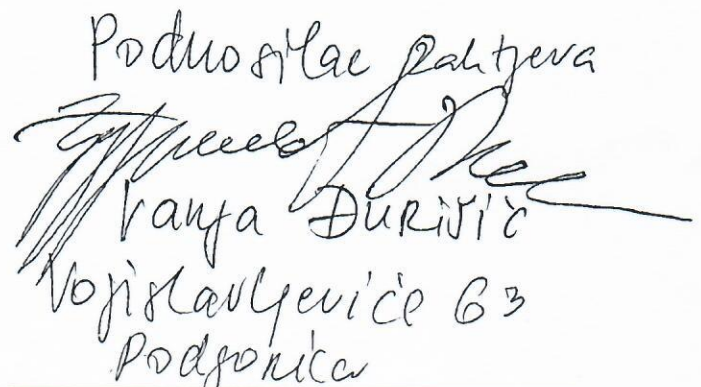 Podnosilac zahtjeva
Vanja ĐURIŠIĆ
Vojislavljeviće 63
Podgorica